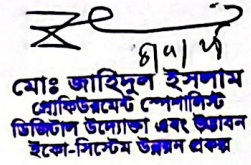 মোঃ জাহিদুল ইসলাম
প্রোকিউরমেন্ট স্পেশালিস্ট
ডিজিটাল উদ্যোক্তা এবং উদ্ভাবন
ইকো-সিস্টেম উন্নয়ন প্রকল্প